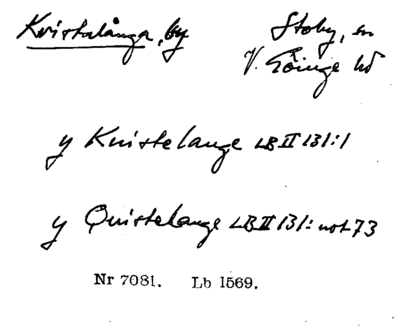 Kvistalånga, by Stoby, sn
V. Göinge hd
y Knistelange LB II 131:1
y Quistelange LB II 131: not 73
Nr 7081. Lb 1569.